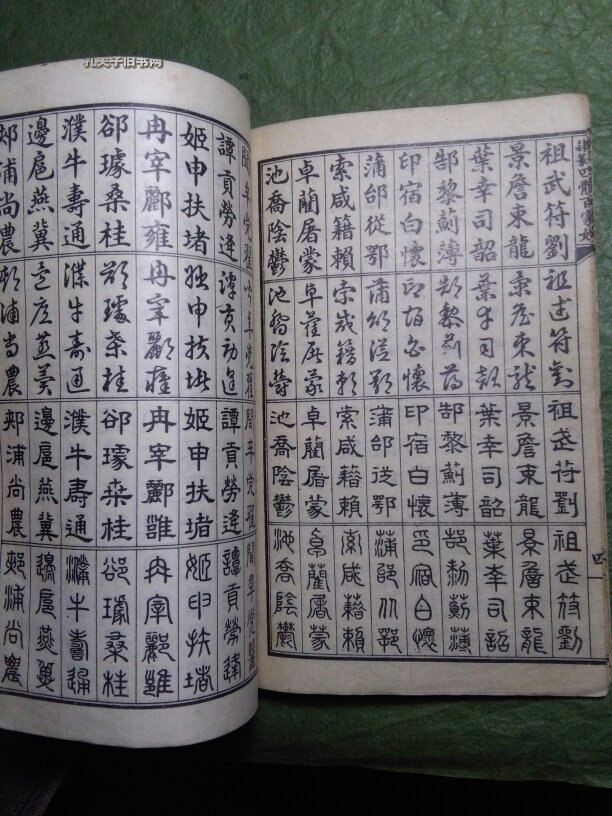 孔夫子旧书网
四體百家姓
四
祖武符劉 祖武符劉 祖武符劉 祖武符劉
景詹束龍 景詹束龍 景詹束龍 景詹束龍
葉幸司韶 葉幸司韶 葉幸司韶 葉幸司韶
郜黎薊薄 郜黎薊薄 郜黎薊薄 郜黎薊薄
印宿白懷 印宿白懷 印宿白懷 印宿白懷
蒲邰從鄂 蒲邰從鄂 蒲邰從鄂 蒲邰從鄂
索咸籍賴 索咸籍賴 索咸籍賴 索咸籍賴
卓藺屠蒙 卓藺屠蒙 卓藺屠蒙 卓藺屠蒙
池喬陰鬱 池喬陰鬱 池喬陰鬱 池喬陰鬱
聞莘党翟 聞莘党翟 聞莘党翟 聞莘党翟
譚貢勞逄 譚貢勞逄 譚貢勞逄 譚貢勞逄
姬申扶堵 姬申扶堵 姬申扶堵 姬申扶堵
冉宰酈雍 冉宰酈雍 冉宰酈雍 冉宰酈雍
郤璩桑桂 郤璩桑桂 郤璩桑桂 郤璩桑桂
濮牛壽通 濮牛壽通 濮牛壽通 濮牛壽通
邊扈燕冀 邊扈燕冀 邊扈燕冀 邊扈燕冀
郟浦尚農 郟浦尚農 郟浦尚農 郟浦尚農